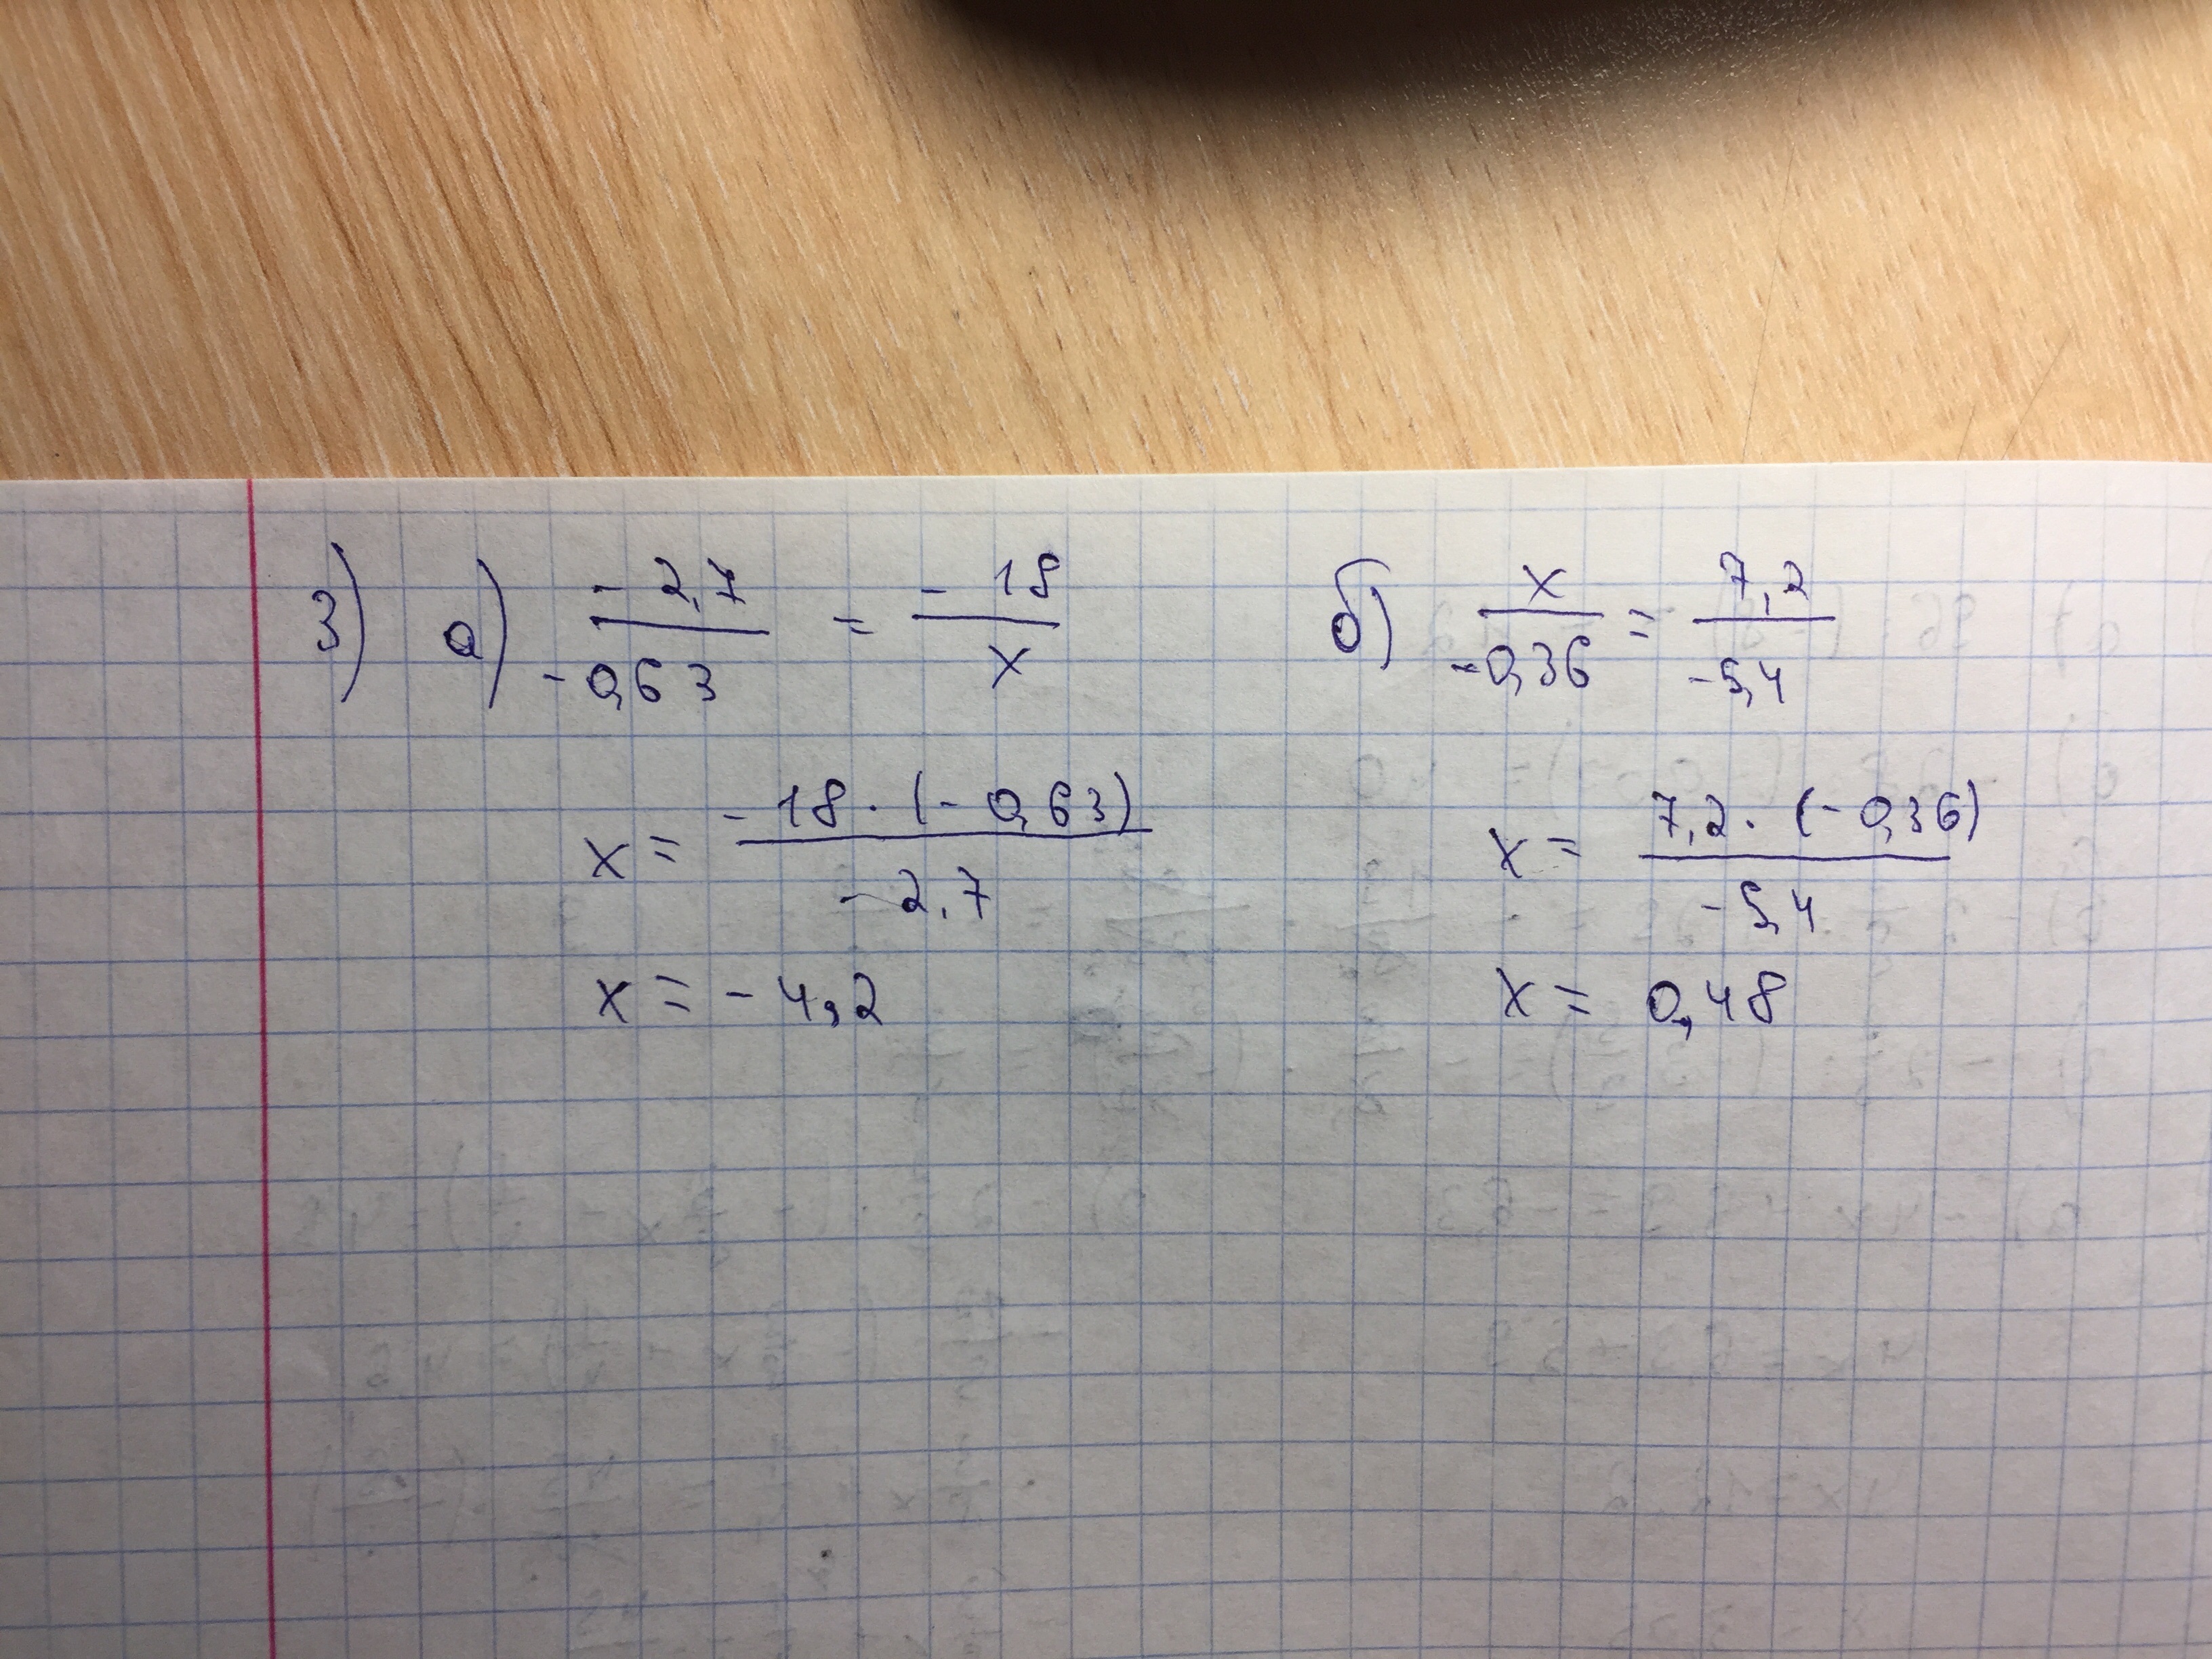 3) а) -2,7/-0,63 = -18/x
x = -18 · (-0,63)/-2,7
x = -4,2
б) x/-0,36 = 7,2/-5,4
x = 7,2 · (-0,36)/-5,4
x = 0,48